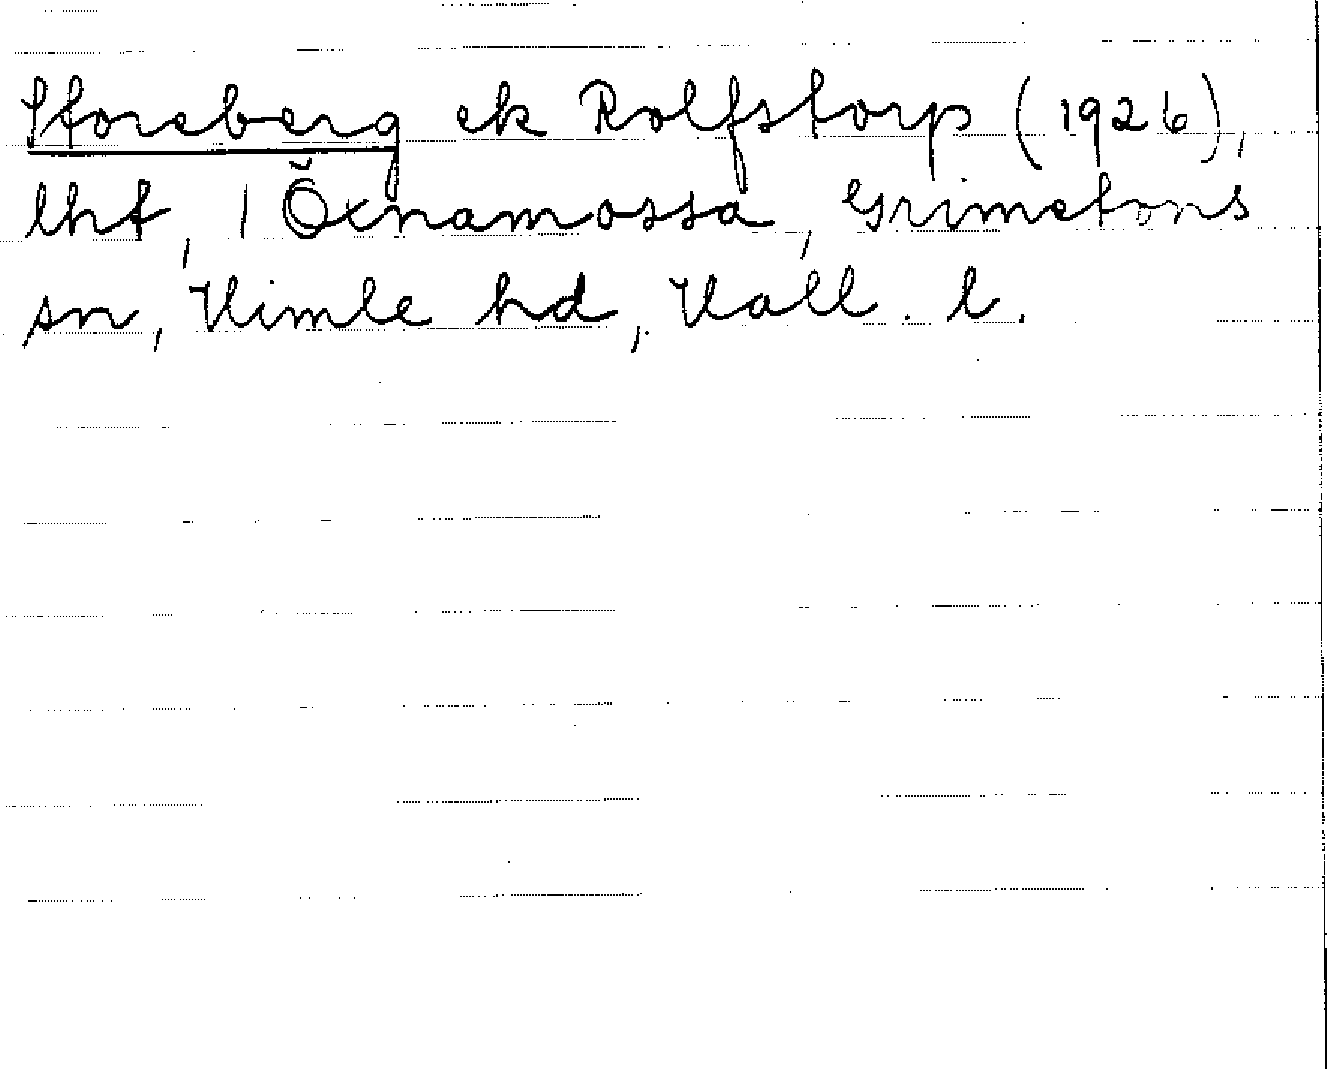 Storeberg ek Rolfstorp (1926),
lht, 1 Öxnamossa, Grimetons
sn, Himle hd, Hall. l.